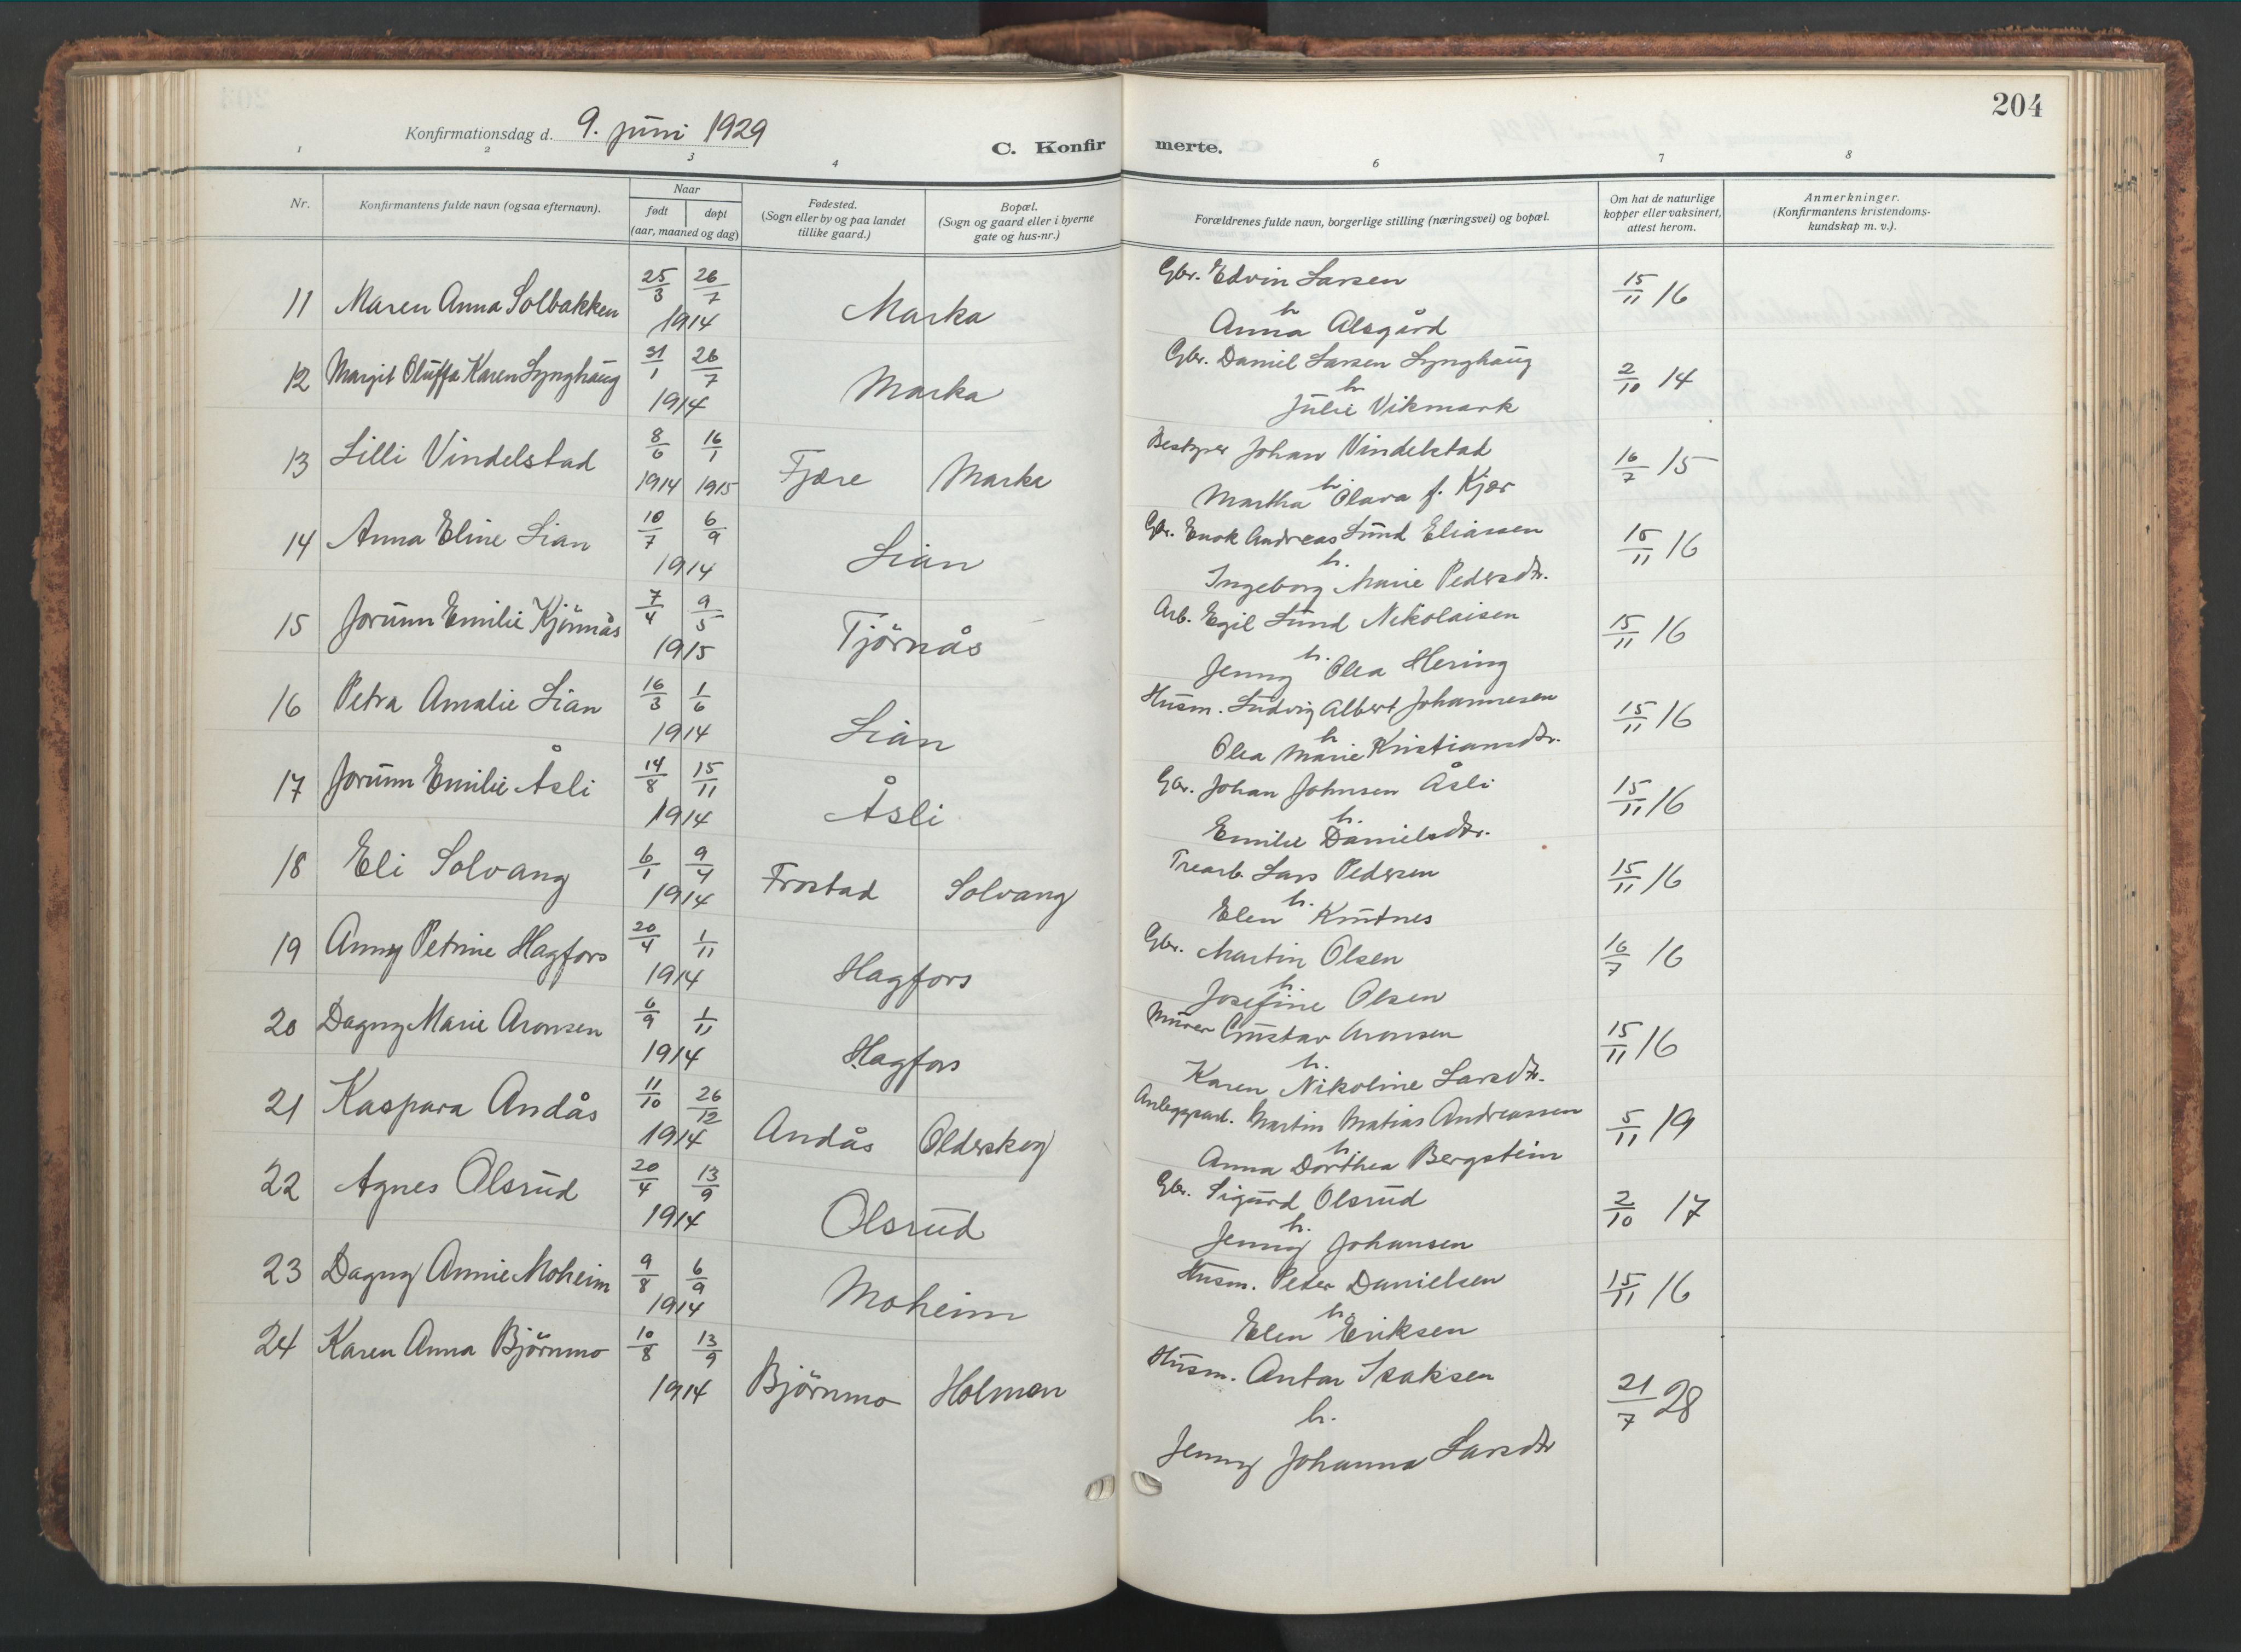 204
Konfirmationsdag d. 9. juni 1929
C. Konfirmerte.
1 2 3 4 6 7 8
Nr. Konfirmantens fulde navn (ogsaa efternavn). Naar født døpt (aar, maaned og dag) Fødested. (Sogn eller by og paa landet tillike gaard.) Bopæl. (Sogn og gaard eller i byerne gate og hus-nr.) Forældrenes fulde navn, borgerlige stilling (næringsvei) og bopæl. Om hat de naturlige kopper eller vaksinert, attest herom. Anmerkninger. (Konfirmantens kristendoms-kundskap m. v.).
11 Maren Anna Solbakken 25/3 26/7 1914 Marka Gbr. Edvin Larsen h Anna Alsgård 15/11 16
12 Margit Oluffa Karen Lynghaug 31/1 26/7 1914 Marka Gbr. Daniel Larsen Lynghaug h. Julie Vikmark 2/10 14
13 Lilli Vindelstad 8/6 1914 16/1 1915 Fjære Marka Bestyrer Johan Vindelstad h. Martha Olava f. Kjær 16/7 15
14 Anna Eline Lian 10/7 6/9 1914 Lian Gbr. Enok Andreas Lund Eliassen h. Ingeborg Marie Pedersdtr. 15/11 16
15 Jorunn Emilie Kjönnås 7/4 9/5 1915 Tjörnås Arb. Egil Lund Nikolaisen h. Jenny Olea Hering 15/11 16
16 Petra Amalie Lian 16/3 1/6 1914 Lian Husm. Ludvig Albert Johannesen h Olea Marie Kristiansdtr. 15/11 16
17 Jorunn Emilie Åsli 14/8 15/11 1914 Åsli Gbr. Johan Johnsen Åsli h. Emilie Danielsdtr. 15/11 16
18 Eli Solvang 6/1 9/4 1914 Frostad Solvang Trearb. Lars Pedersen h. Elen Knutnes 15/11 16
19 Anny Petrine Hagfors 20/4 1/11 1914 Hagfors Gbr. Martin Olsen h. Josefine Olsen 16/7 16
20 Dagny Marie Aronsen 6/9 1/11 1914 Hagfors Murer Gustav Aronsen h. Karen Nikoline Larsdtr. 15/11 16
21 Kaspara Andås 11/10 26/12 1914 Andås Olderskog Anleggsarb. Martin Matias Andreassen h. Anna Dorthea Bergstein 5/11 19
22 Agnes Olsrud 20/4 13/9 1914 Olsrud Gbr. Sigurd Olsrud h. Jenny Johansen 2/10 17
23 Dagny Annie Moheim 9/8 6/9 1914 Moheim Husm. Peder Danielsen h. Elen Eriksen 15/11 16
24 Karen Anna Björnmo 10/8 13/9 1914 Björnmo Holmen Husm. Anton Isaksen h. Jenny Johanna Larsdtr 21/7 28